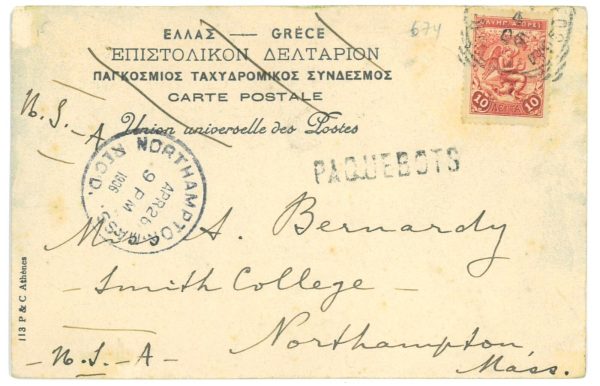 ΕΛΛΑΣ — GRÈCE
674
ΕΠΙΣΤΟΛΙΚΟΝ ΔΕΛΤΑΡΙΟΝ
ΠΑΓΚΟΣΜΙΟΣ ΤΑΧΥΔΡΟΜΙΚΟΣ ΣΥΝΔΕΣΜΟΣ
CARTE POSTALE
Union universelle des Postes
N. S. - A
10 10
NORTHAMPTON MASS. REC'D.
APR 26
9 PM
1906
PAQUEBOTS
A. Bernardy
Smith College -
Northampton
Mass.
- N. S. - A -
113 P & C Athènes